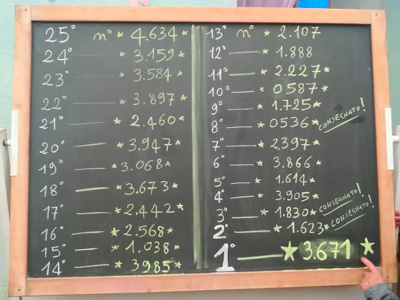 25° n° * 4.634 *
24° * 3.159 *
23° * 3.584 *
22° * 3.897 *
21° * 2.460 *
20° * 3.947
19° * 3.068 *
18° * 3.673 *
17° * 2.442 *
16° * 2.568 *
15° * 1.038 *
14° * 3985 *
13° n° * 2.107
12° * 1.888
11° * 2.227 *
10° * 0587 *
9° * 1.725 *
8° * 0536 * CONSEGNATO!
7° * 2397 *
6° * 3.866
5° * 1.614 *
4° * 3.905 *
3° * 1.830 * CONSEGNATO!
2° * 1.623 * CONSEGNATO!
1° * 3.671 *